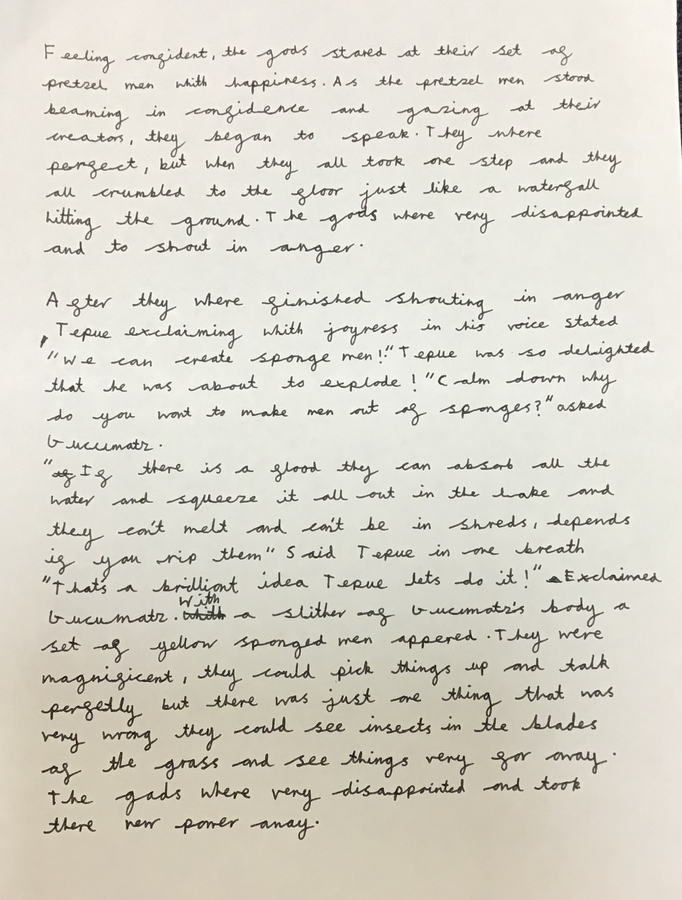 Feeling confident, the gods stared at their set of
pretzel men whith happiness. As the pretzel men stood
beaming in confidence and gazing at their
creators, they began to speak. They where
perfect, but when they all took one step and they
all crumbled to the floor just like a waterfall
hitting the ground. The gods where very disappointed
and to shout in anger.
After they where finished shouting in anger
, Tepue exclaiming whith joyress in his voice stated
"We can create sponge men!" Tepue was so delighted
that he was about to explode! "Calm down why
do you want to make men out of sponges?" asked
Gucumatz.
"If there is a flood they can absorb all the
water and squeeze it all out in the lake and
they can't melt and can't be in shreds, depends
if you rip them" Said Tepue in one breath
"That's a brilliant idea Tepue lets do it!" Exclaimed
Gucumatz. With a slither of Gucumatz's body a
set of yellow sponged men appered. They were
magnificent, they could pick things up and talk
perfetly but there was just one thing that was
very wrong they could see insects in the blades
of the grass and see things very far away.
The gods where very disappointed and took
there new power away.